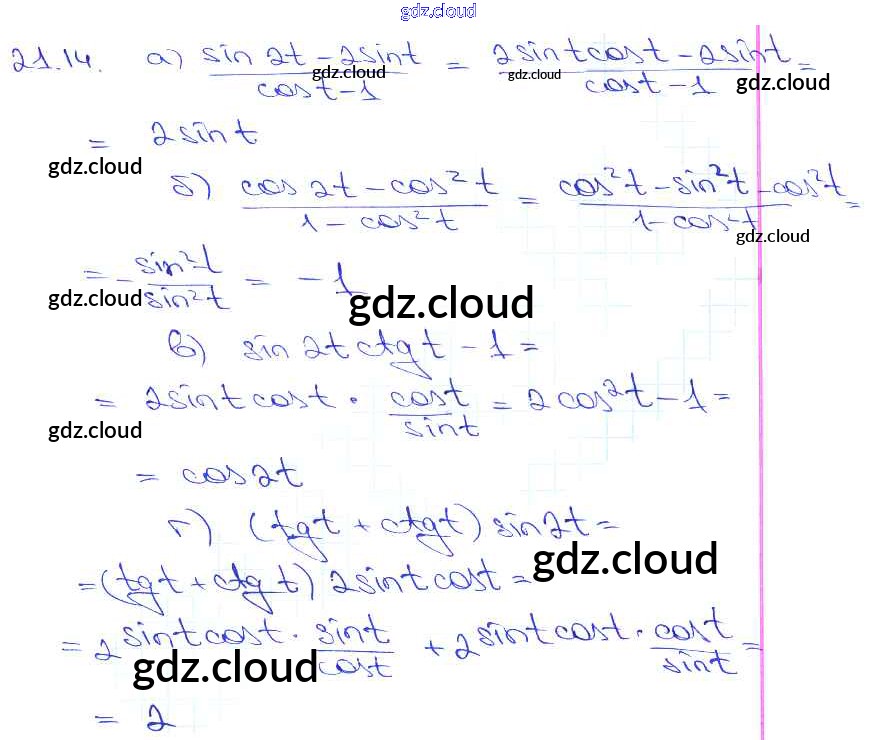 gdz.cloud
21.14. а) (sin 2t - 2sint)/(cost - 1) = (2sintcost - 2sint)/(cost - 1) =
gdz.cloud gdz.cloud gdz.cloud
= 2sint
gdz.cloud
б) (cos 2t - cos²t)/(1 - cos²t) = (cos²t - sin²t - cos²t)/(1 - cos²t) =
gdz.cloud
= - sin²t/sin²t = -1
gdz.cloud gdz.cloud
в) sin 2t ctgt - 1 =
= 2sintcost · cost/sint = 2cos²t - 1 =
gdz.cloud
= cos2t
г) (tgt + ctgt) sin2t =
gdz.cloud
= (tgt + ctgt) 2sintcost =
= 2sintcost · sint/cost + 2sintcost · cost/sint =
gdz.cloud
= 2